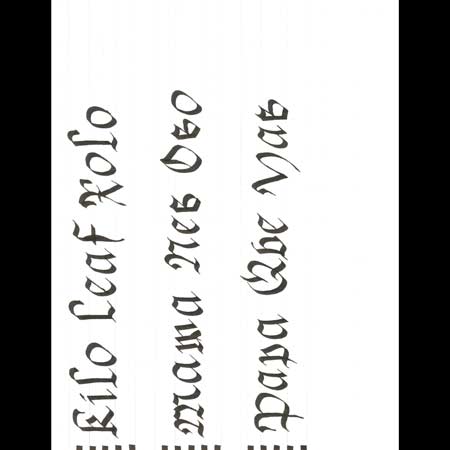 Kilo Leaf Xolo
Mama Nes Oso
Papa Qve Yas